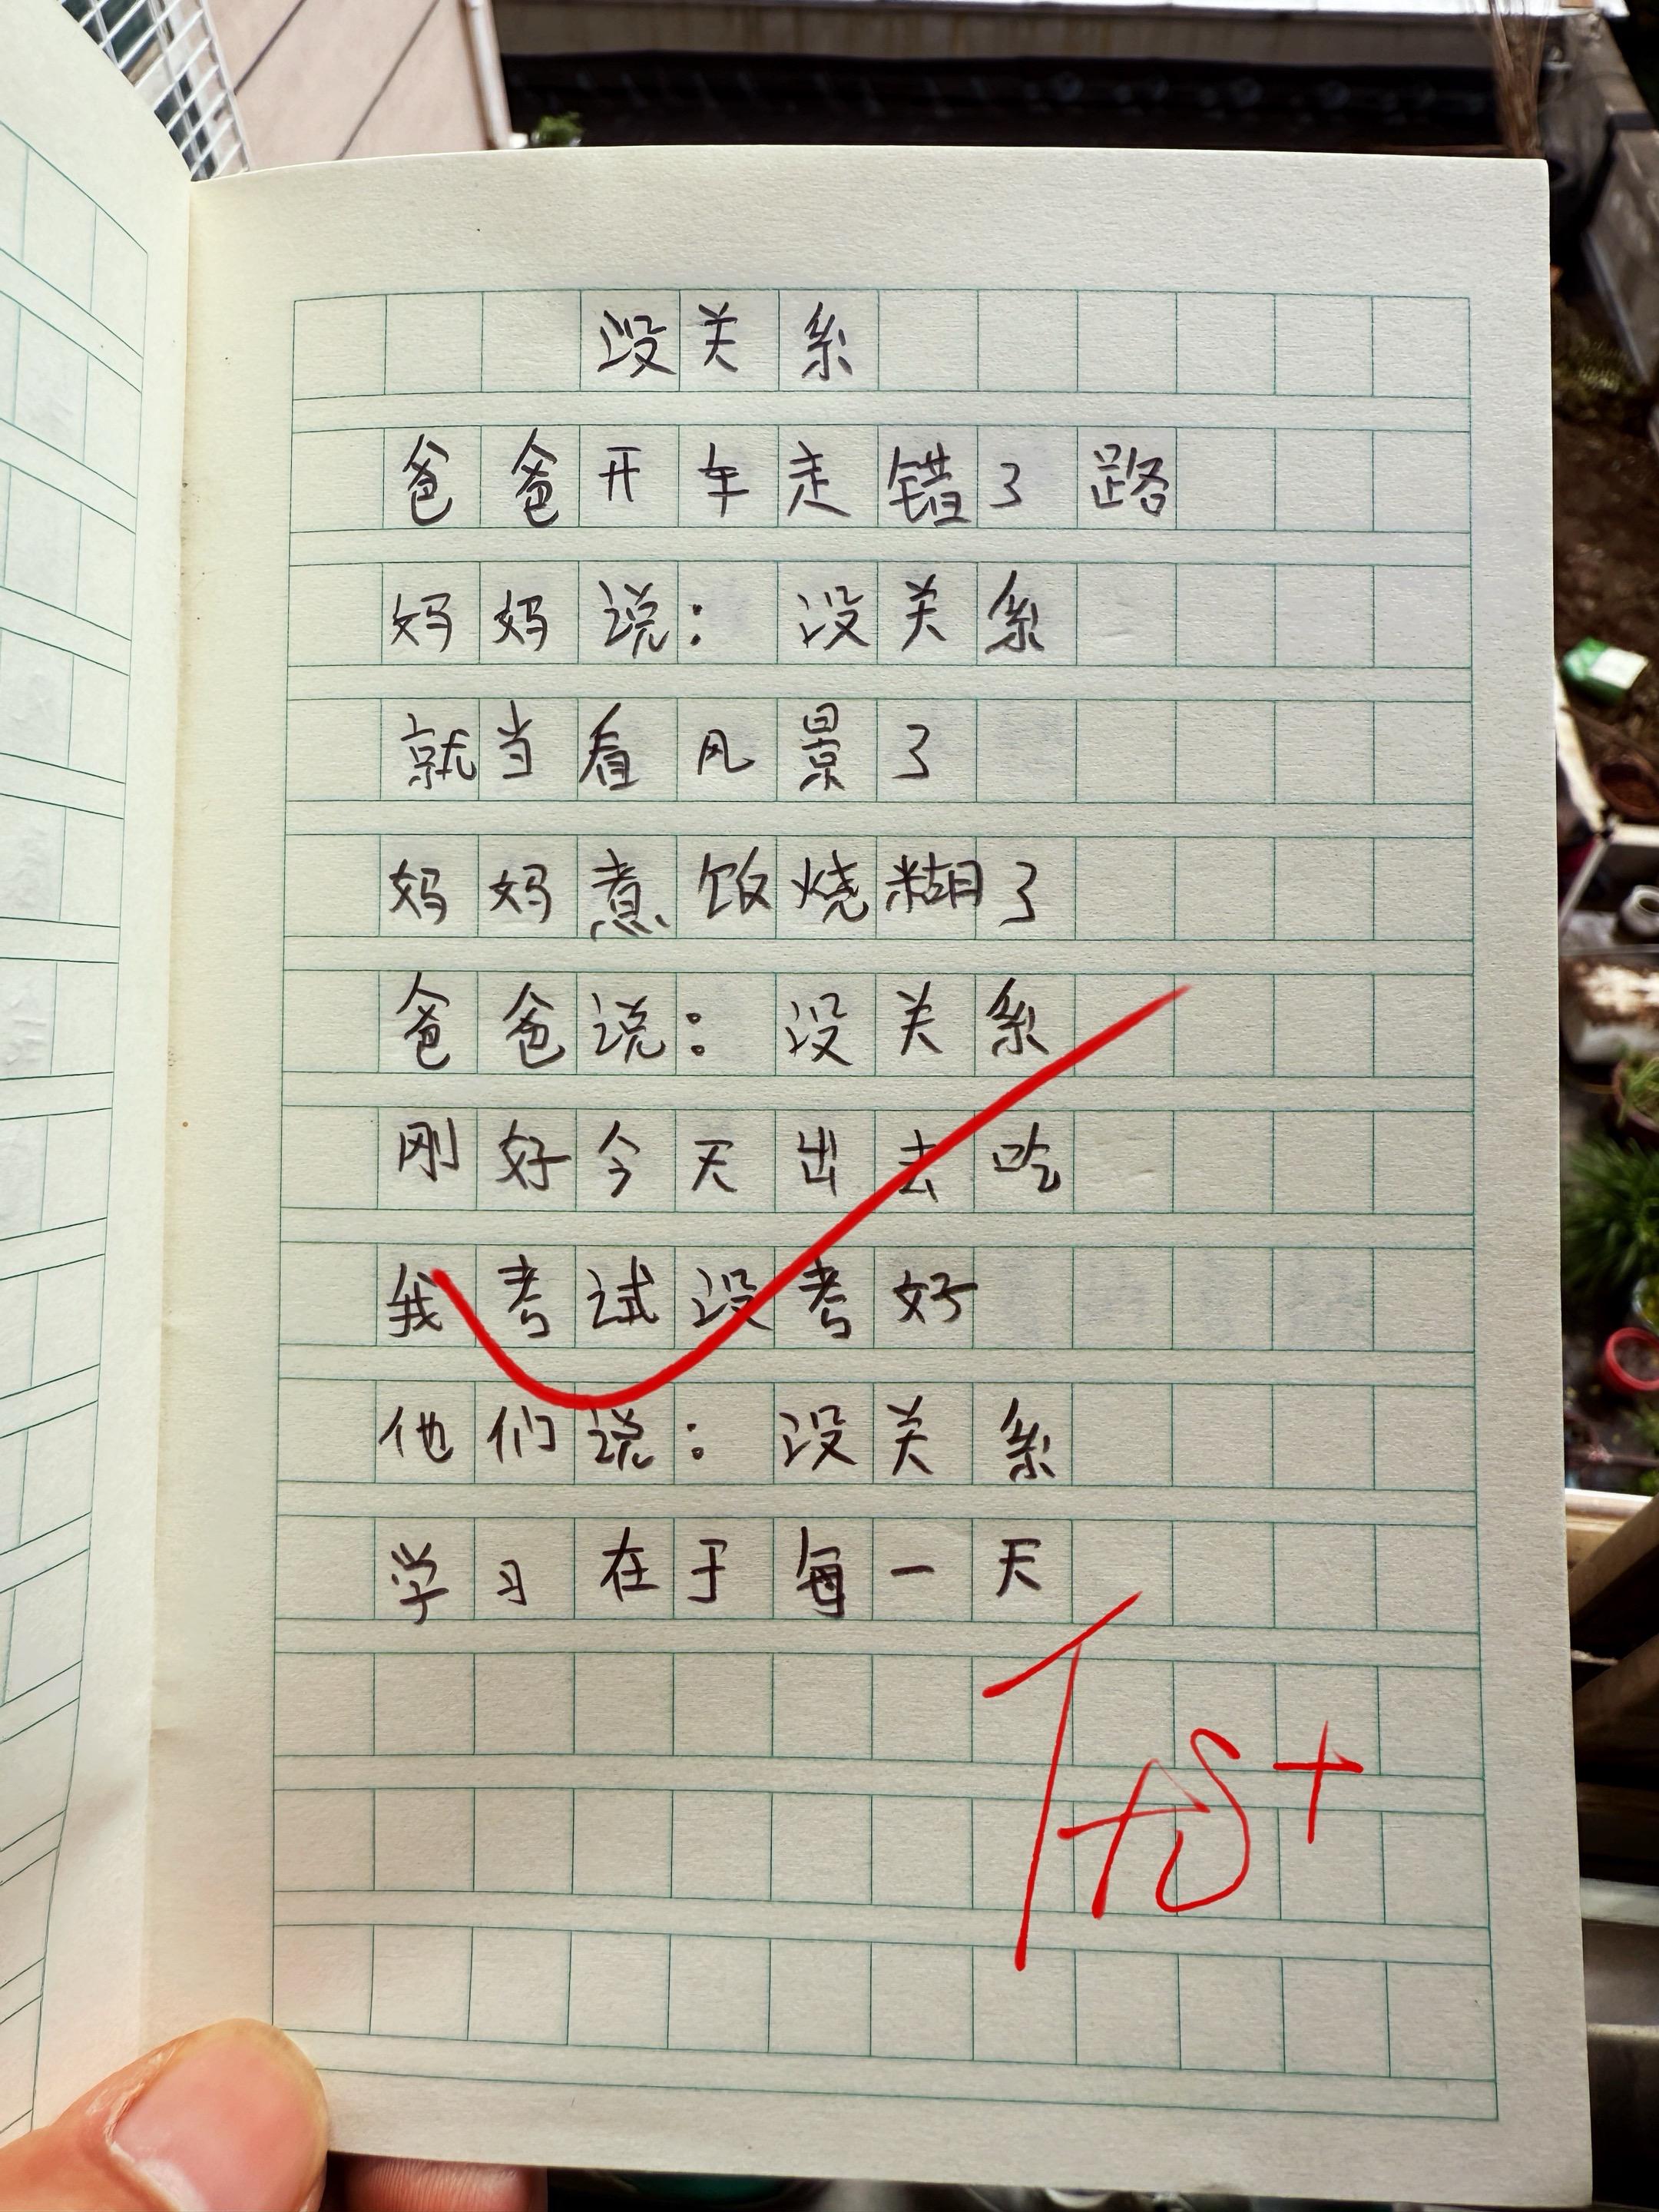 没关系
爸爸开车走错了路
妈妈说：没关系
就当看风景了
妈妈煮饭烧糊了
爸爸说：没关系
刚好今天出去吃
我考试没考好
他们说：没关系
学习在于每一天